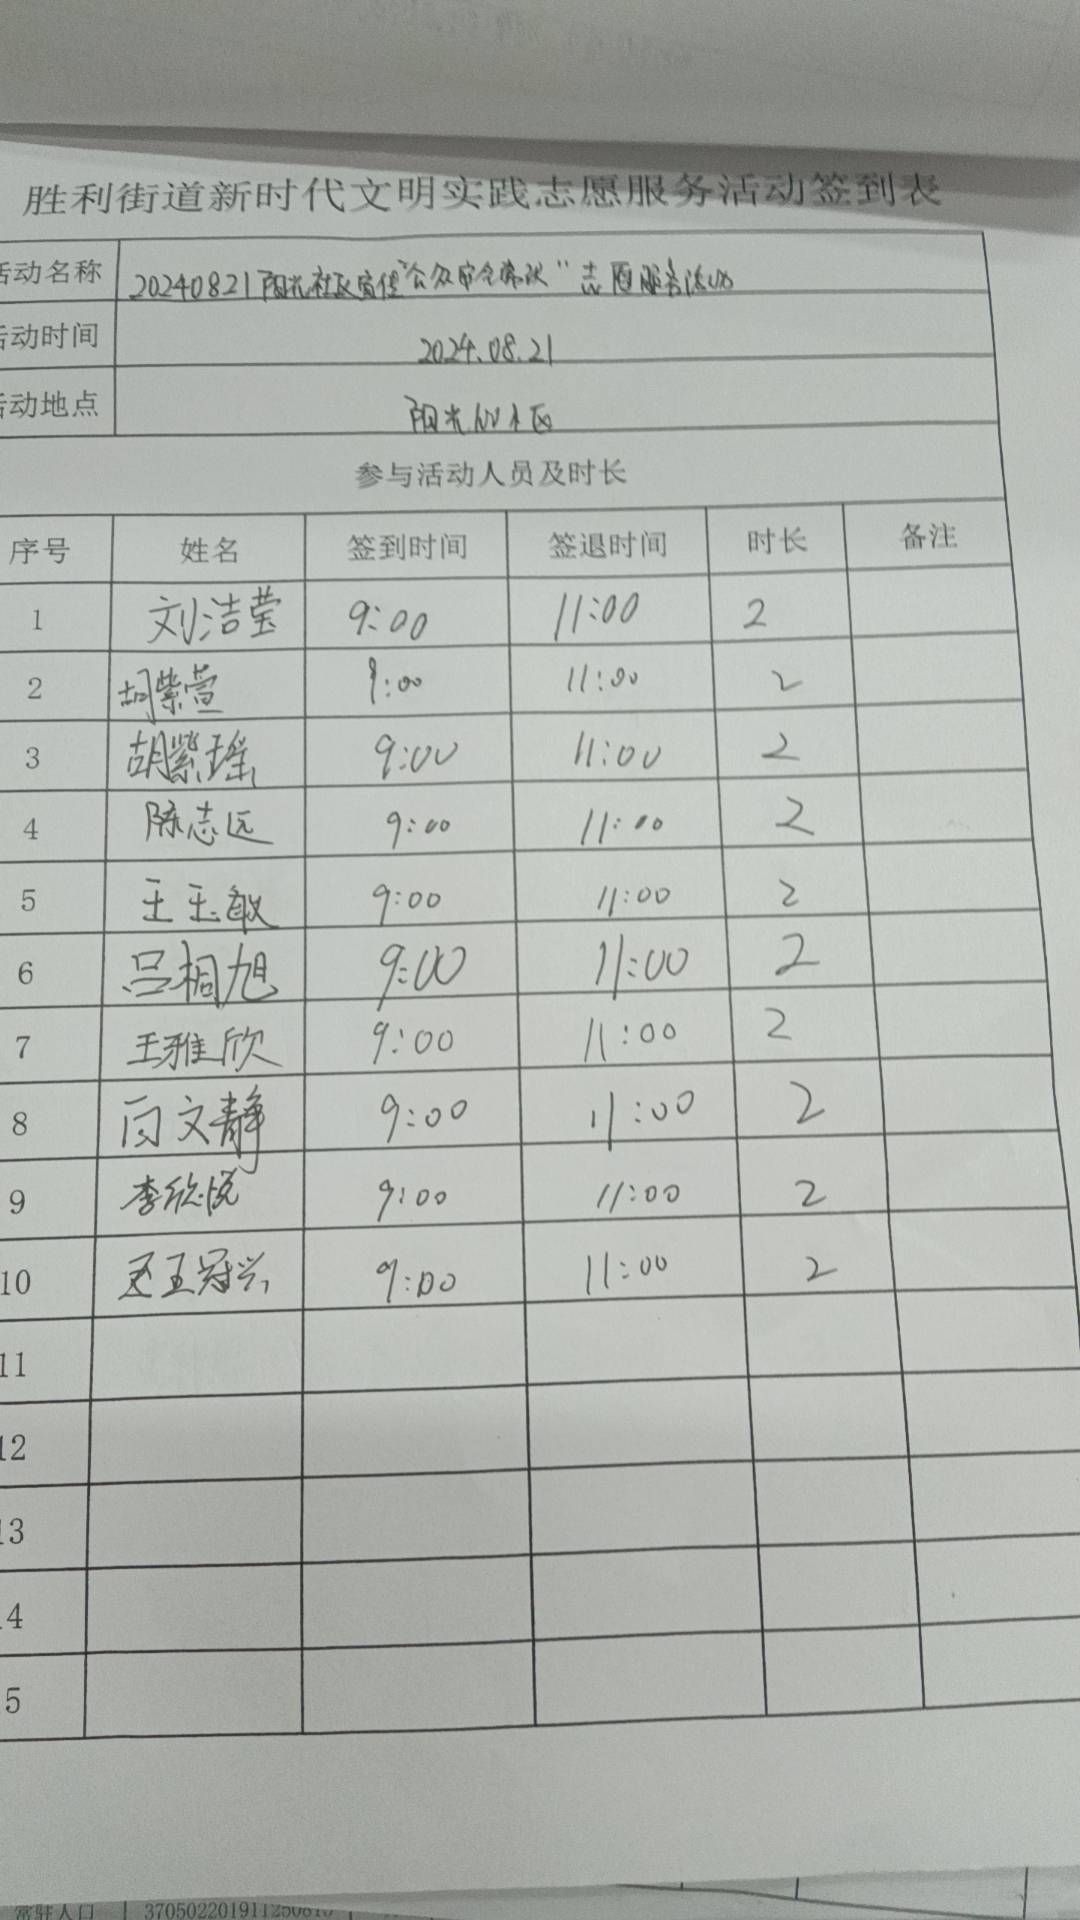 胜利街道新时代文明实践志愿服务活动签到表
活动名称 20240821阳光社区宣传"公众安全常识"志愿服务活动
活动时间 2024.08.21
活动地点 阳光100小区
参与活动人员及时长
序号 姓名 签到时间 签退时间 时长 备注
1 刘洁莹 9:00 11:00 2
2 胡紫萱 9:00 11:00 2
3 胡紫瑶 9:00 11:00 2
4 陈志远 9:00 11:00 2
5 王玉敏 9:00 11:00 2
6 吕桐旭 9:00 11:00 2
7 王雅欣 9:00 11:00 2
8 白文静 9:00 11:00 2
9 李欣悦 9:00 11:00 2
10 王冠兴 9:00 11:00 2
11
12
13
14
15
常驻人口